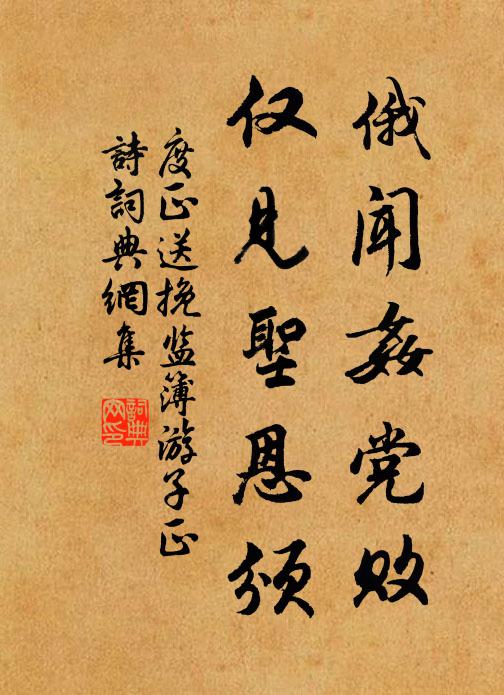 俄闻姦党败
仅见聖恩颁
度正送挽监簿游子正
詩詞典網集
詞典
网印